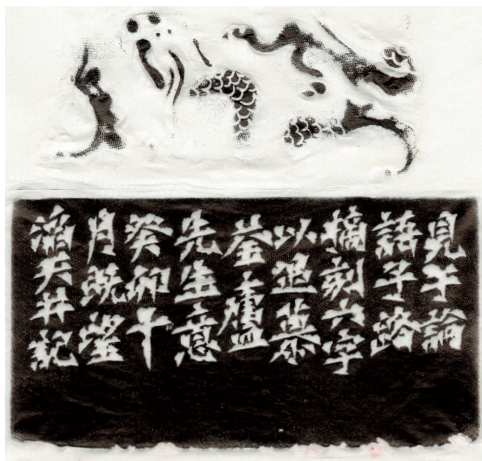 見于論
語子路
摘刻六字
以追慕
荃廬
先生意
癸卯十
月既望
井紀